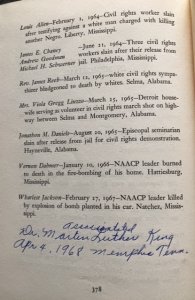 Louis Allen—February 1, 1964—Civil rights worker slain
after testifying against a white man charged with killing
another Negro. Liberty, Mississippi.
James E. Chaney
Andrew Goodman —June 21, 1964—Three civil rights
Michael H. Schwerner workers slain after their release from
jail. Philadelphia, Mississippi.
Rev. James Reeb—March 12, 1965—white civil rights sympa-
thizer bludgeoned to death by whites. Selma, Alabama.
Mrs. Viola Gregg Liuzzo—March 25, 1965—Detroit house-
wife serving as volunteer in civil rights march shot on high-
way between Selma and Montgomery, Alabama.
Jonathan M. Daniels—August 20, 1965—Episcopal seminarian
slain after release from jail for civil rights demonstration.
Hayneville, Alabama.
Vernon Dahmer—January 10, 1966—NAACP leader burned
to death in the fire-bombing of his home. Hattiesburg,
Mississippi.
Wharlest Jackson—February 27, 1967—NAACP leader killed
by explosion of bomb planted in his car. Natchez, Missis-
sippi.
assassinated
Dr. Martin Luther King
Apr 4, 1968 Memphis Tenn.
378